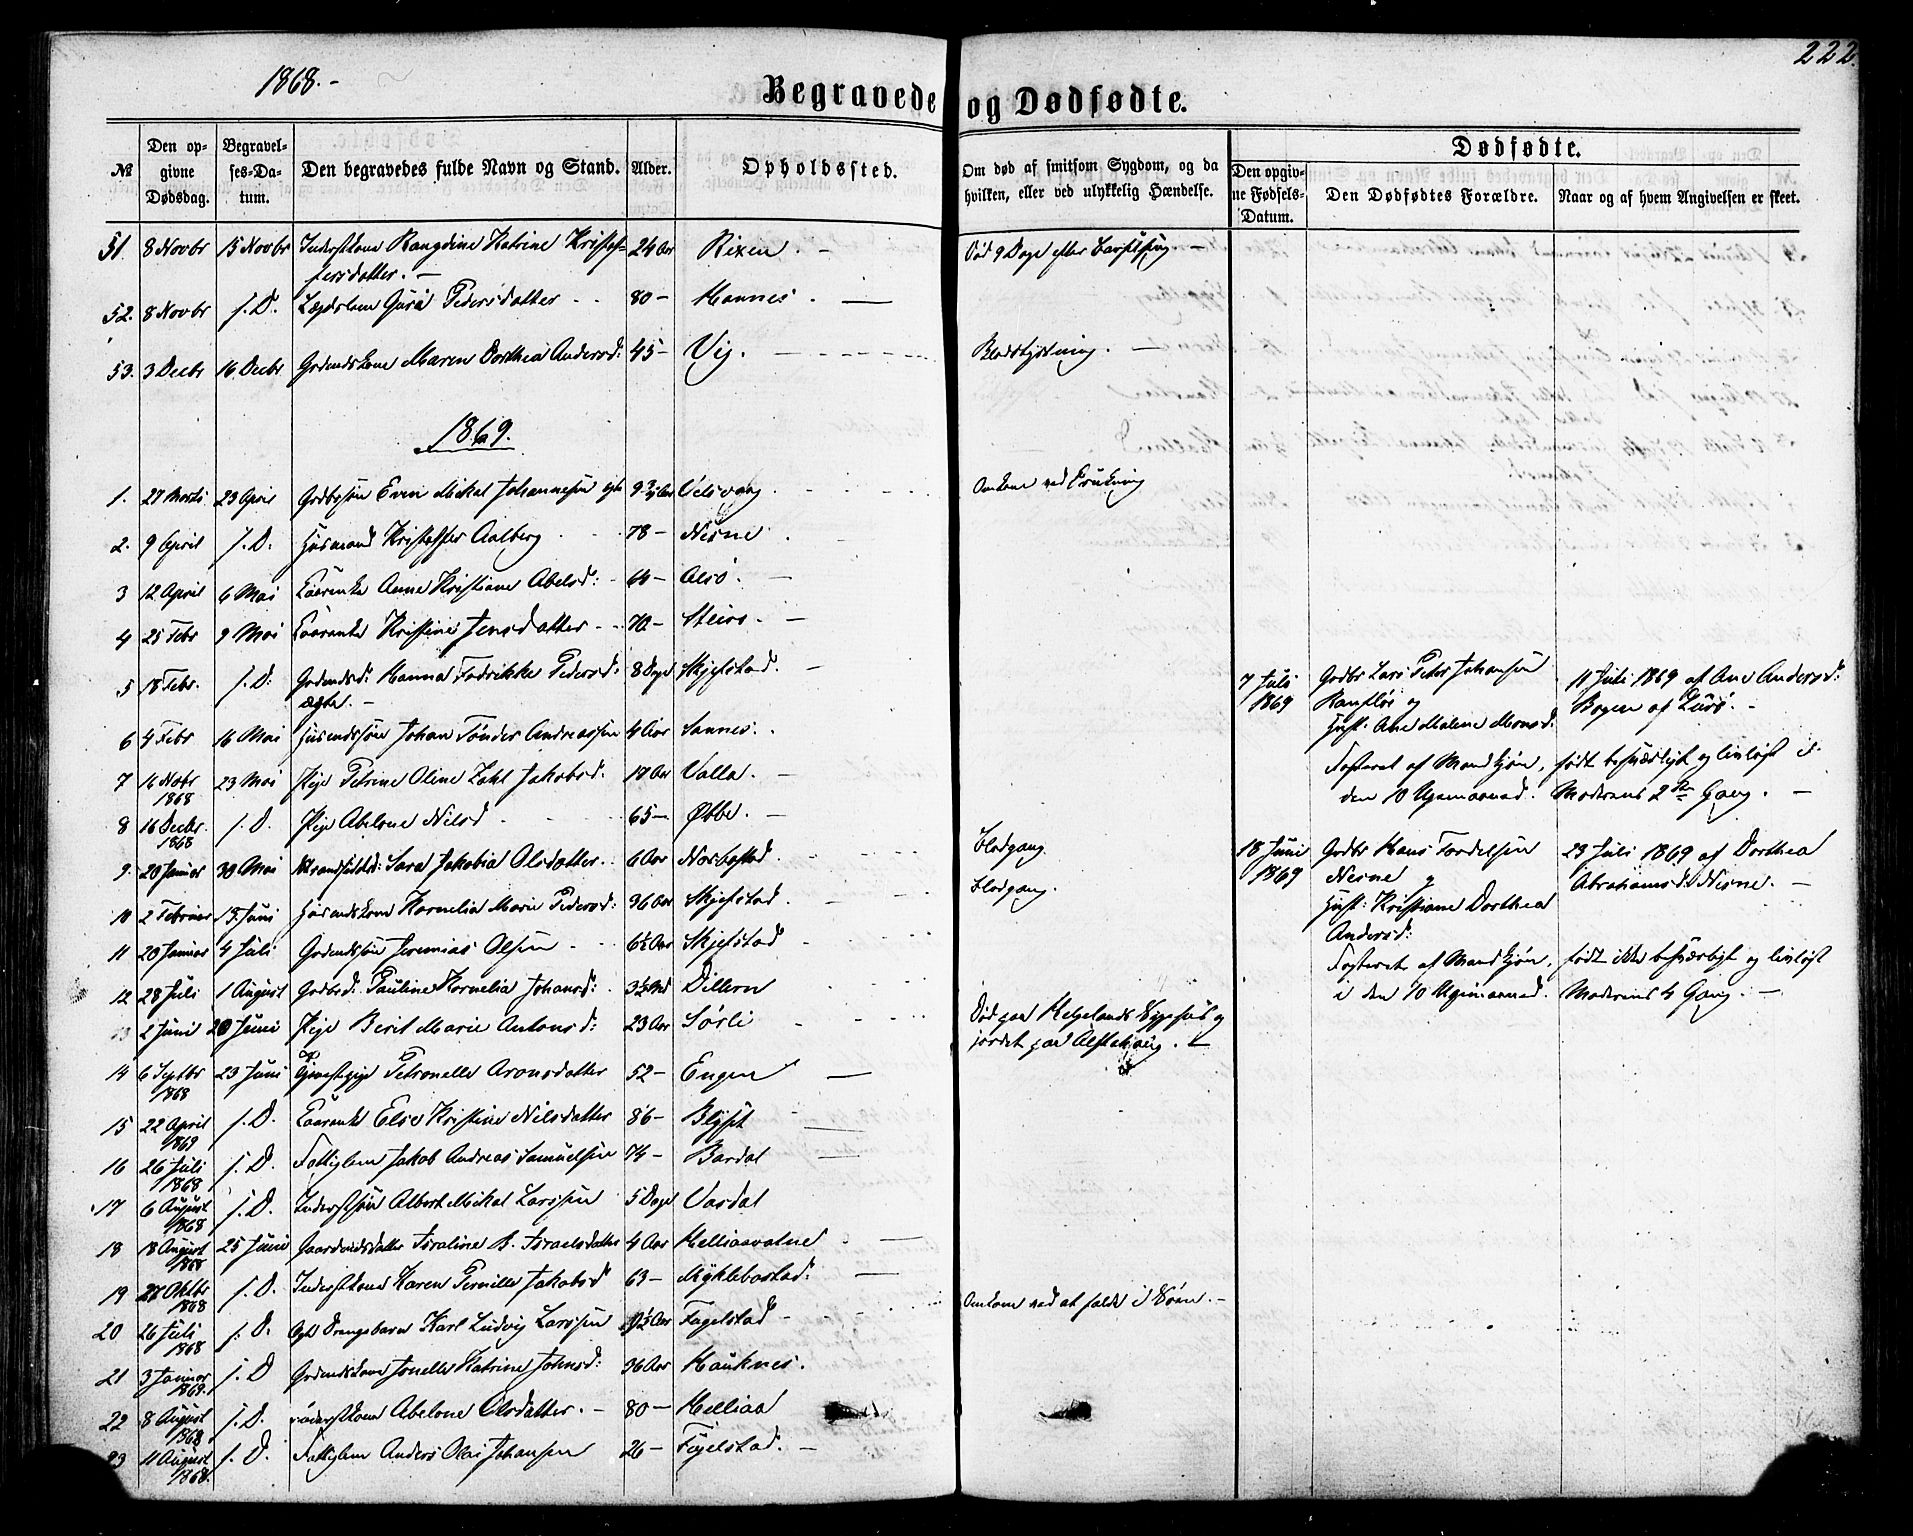 222.
1868.-
Begravede og Dødfødte.
№
Den opgivne Dødsdag.
Begravelses-Datum.
Den begravedes fulde Navn og Stand.
Alder.
Opholdssted.
Om død af smitsom Sygdom, og da hvilken, eller ved ulykkelig Hændelse.
Dødfødte.
Den opgivne Fødsels-Datum.
Den Dødfødtes Forældre.
Naar og af hvem Angivelsen er skeet.
51 8 Novbr 15 Novbr Inderstkone Rangdine Katrine Kristof- 24 Aar Rixen Død 9 Dage efter Barselseng.
fersdatter.-
52. 8 Novbr s. D. Lægdslem Guru Pedersdatter 80 - Hannes.
53. 3 Decbr 16 Decbr Gdmndskone Maren Dorthea Andersd: 45 - Vig. Blodstyrtning.
1869.
1. 27 Marts 23 April Gdbrsøn Even Mikal Johannesen Velsvaag Omkom ved Drukning
2. 9 April s. D. Husmand Kristoffer Aalberg 78 - Nesne
3 12 April 6 Mai Kaarenke Anne Kristiane Abelsd: Alsö.
4 25 Febr 9 Mai Kaarenke Kristine Jensdatter 70 -
5 18 Febr. s. D: Gdmndsd: Hanna Fredrikke Pedersd: 8 Dage Skjelstad.
ægte.-
6 4 Febr 16 Mai Husmdssøn Johan Tønder Andreassen 4 Aar Sannes.
7 16 Novbr 1868 23 Mai Pige Petrine Oline Jakobsd. Valla.
8 16 Decbr. 1868 s. D. Pige Abelone Nilsd 65 -
9 20 Januar 30 Mai Strandsiddd: Sara Jakobia Olsdatter. 6 Aar Blodgang.
10 2 Februar 13 Juni Husmdskone Kornelia Marie Pedersd: 36 Aar Skjelstad Blodgang.
11 20 Januar 4 Juli Gdmndssøn Jeremias Olsen 6½ Aar Skjelstad
12 28 Juli 1 August Gdbrd: Pauline Kornelia Johansd: Dillern
13 2 Juni 20 Juni Pige Berit Marie Antonsd: 23 Aar Sörli Død paa Helgelands Sygehus og
jordet paa Alstahaug.
14 6 Septbr 1868 23 Juni Petronelle Aronsdatter 52 - Engen
15 22 April 1869 s. D. Kaarenke Else Kristine Nilsdatter 86 -
16 26 Juli 1868 s. D. Fattiglem Jakob Andreas Samuelsen 74 - Bardal
17 6 August 1868 s. D. Inderstsøn Albert Mikal Larssen 5 Dage Vardal
18 18 August 1868 25 Juni Gaardmdsdatter Israeline B. Israelsdatter 4 Aar Helliaavatne
19 27 Oktbr 1868 s. D. Inderstkone Karen Pernille Jakobsd 63 - Myklebostad.
20 26 Juli 1868 s. D. Drengebarn Karl Ludvig Larssen Fagelstad Omkom ved at falde i Söen.-
21 3 Januar 1869. s. D Gdmndskone Jonelle Katrine Johnsd: 36 Aar Hauknes.
22 8 August 1868 s. D. Inderstkone Abelone Olsdatter.- 80 - Helliaa
23 11 August 1868. s. D. Fattiglem Anders Olai Johansen 26 - Fagelstad.
7 Juli 1869
Gdbr Lars Peter Johansen
og
Hust. Ane Malene Monsd.
Fosteret af Mandkjön,
i den 10 Ugemaaned.
11 Juli 1869 af Ane Andersd:
Bogen af Lurö.-
født besværligt og livløst i
Moderens 2den Gang.-
18 Juni 1869
Gdbr Hans Fordelsen
Nesne og
Hust: Kristiane Dorthea
Andersd:
Fosteret af Mandkjön,
i den 10 Ugemaaned.
23 Juli 1869 af Dorthea
Abrahamsd: Nesne.-
født ikke besværligt og livløst
Moderens 4 Gang.-